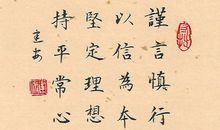 謹言慎行
以信為本
堅定理想
持平常心